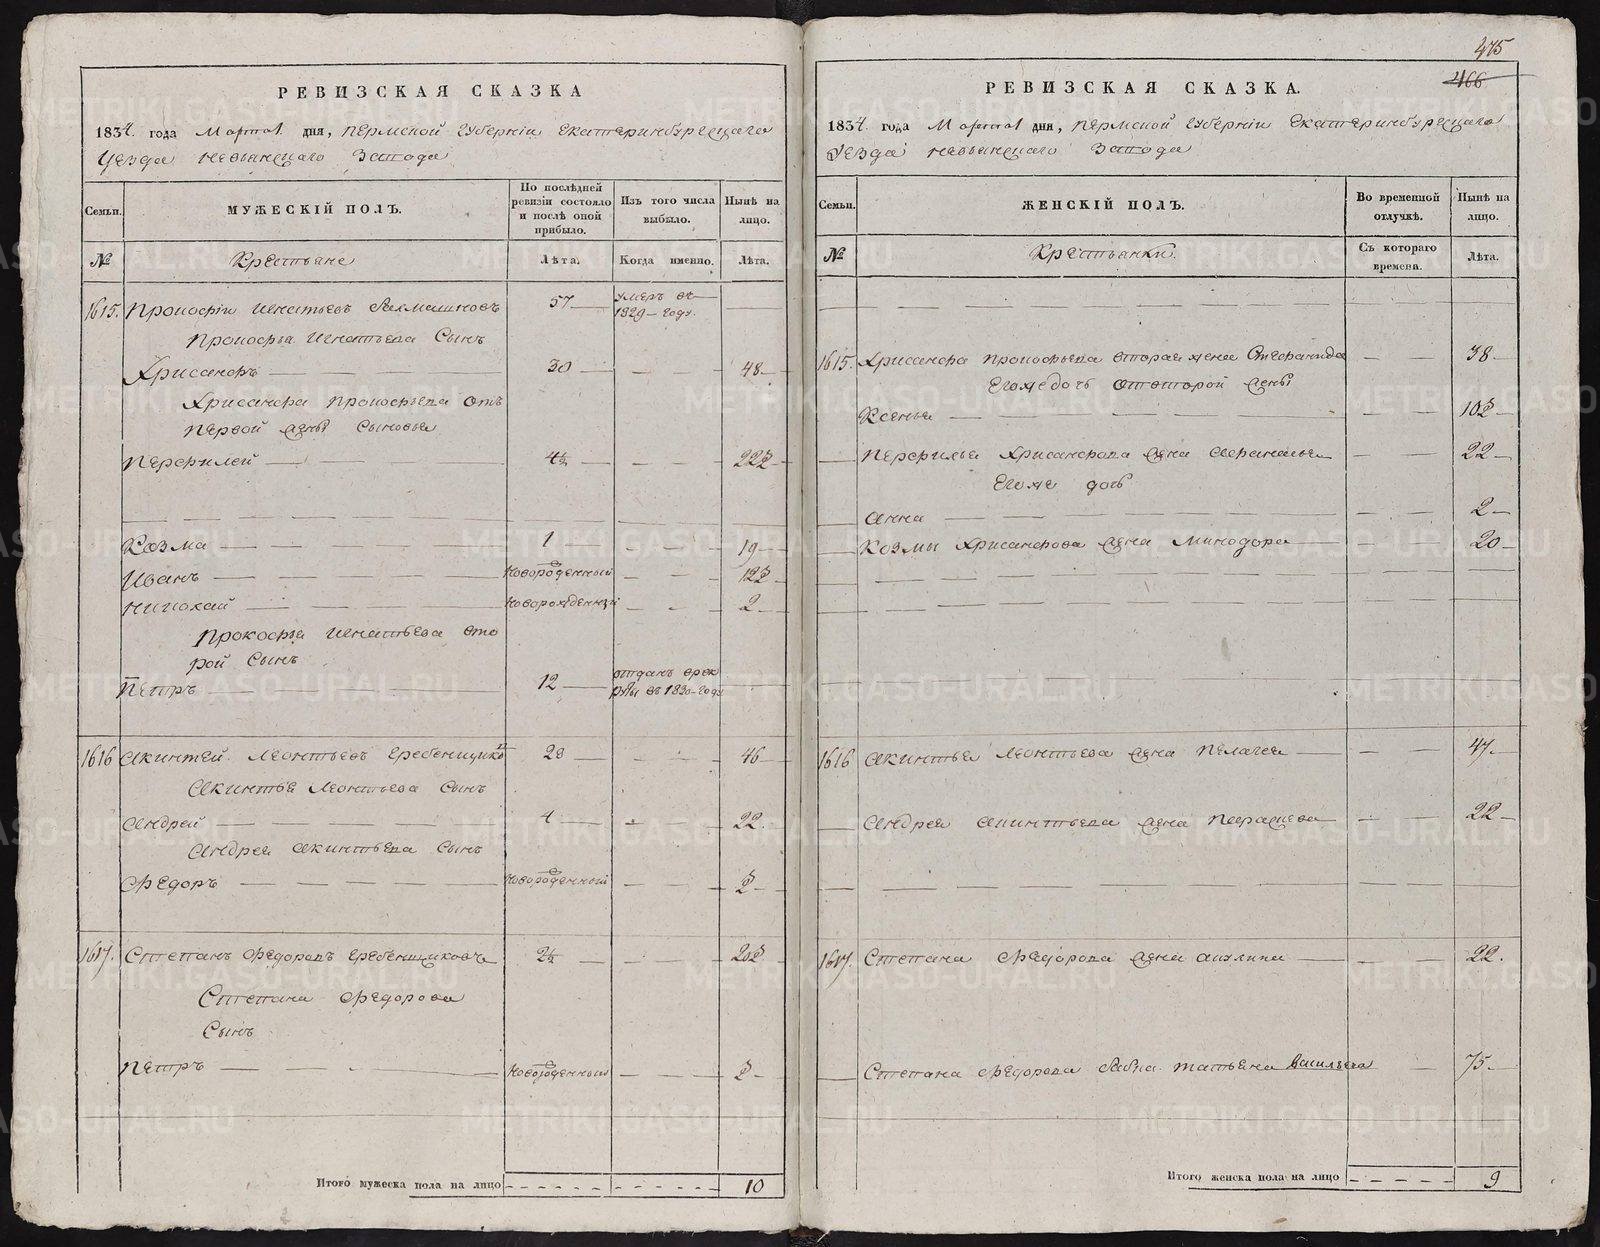 РЕВИЗСКАЯ СКАЗКА
1834. года Марта дня, Пермской Губернии Екатеринбурскаго
Уезда Невьянскаго Завода
Семьи.
МУЖЕСКІЙ ПОЛЪ.
По послѣдней ревизіи состояло и послѣ оной прибыло.
Изъ того числа выбыло.
Нынѣ на лицо.
№
Крестьяне
Лѣта.
Когда именно.
Лѣта.
1615. Прокофіи Игнатьевъ 57 умеръ въ 1829 году.
Прокофья Игнатьева Сынъ
Хрисанфъ 30 48
Хрисанфа Прокофьева отъ
первой жены Сыновья
Перфилей 4½ 22½
Козма 1 19
Иванъ новорожденный 12½
Николай новорожденный 2
Прокофья Игнатьева вто
рой Сынъ
Петръ 12 отданъ врек руты въ 1830 году
1616 Акинтей Леонтьевъ Гребенщиковъ 28 46
Акинтья Леонтьева Сынъ
Андрей 4 22.
Андрея Акинтьева Сынъ
Федоръ новорожденный
1617. Степанъ Федоровъ Гребенщиковъ 2½ 20½
Степана Федорова
Сынъ
Петръ новорожденный
Итого мужеска пола на лицо 10
475
466
РЕВИЗСКАЯ СКАЗКА.
1834. года Марта дня, Пермской Губернии Екатеринбурскаго
Уезда Невьянскаго Завода
Семьи.
ЖЕНСКІЙ ПОЛЪ.
Во временной отлучкѣ.
Нынѣ на лицо.
№
Крестьянки.
Съ котораго времени.
Лѣта.
1615. Хрисанфа Прокофьева вторая жена Стефанида 38
Егоже дочь отвторой жены
Ксенья 10½
Перфилья Хрисанфова жена Афанасья 22
Егоже дочь
Анна 2
Козмы Хрисанфова жена Минодора 20
1616 Акинтья Леонтьева жена Пелагея 47.
Андрея Акинтьева жена Парасковья 22
1617. Степана Федорова жена Акулина 22.
Степана Федорова бабка Татьяна Васильева 75.
Итого женска пола на лицо 9
METRIKI.GASO-URAL.RU